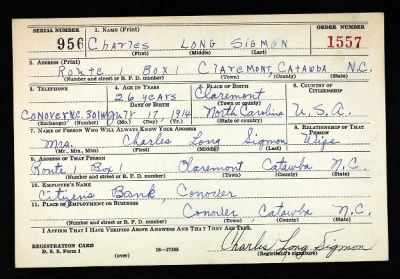 SERIAL NUMBER 1. NAME (Print) ORDER NUMBER
956 Charles Long Sigmon 1557
(First) (Middle) (Last)
2. ADDRESS (Print)
Route Box Claremont Catawba N.C.
(Number and street or R. F. D. number) (Town) (County) (State)
3. TELEPHONE 4. AGE IN YEARS 5. PLACE OF BIRTH 6. COUNTRY OF CITIZENSHIP
26 years Claremont
DATE OF BIRTH (Town or county)
Conover N.C. 301W July 07 1914 North Carolina U.S.A.
(Exchange) (Number) (Mo.) (Day) (Yr.) (State or country)
7. NAME OF PERSON WHO WILL ALWAYS KNOW YOUR ADDRESS 8. RELATIONSHIP OF THAT PERSON
Mrs. Charles Long Sigmon Wife
(Mr., Mrs., Miss) (First) (Middle) (Last)
9. ADDRESS OF THAT PERSON
Route 1 Box 1 Claremont Catawba N.C.
(Number and street or R. F. D. number) (Town) (County) (State)
10. EMPLOYER'S NAME
Citizens Bank, Conover
11. PLACE OF EMPLOYMENT OR BUSINESS
Conover Catawba N.C.
(Number and street or R. F. D. number) (Town) (County) (State)
I AFFIRM THAT I HAVE VERIFIED ABOVE ANSWERS AND THAT THEY ARE TRUE.
Charles Long Sigmon
REGISTRATION CARD
D. S. S. Form 1 (over) 16—17105 (Registrant's signature)